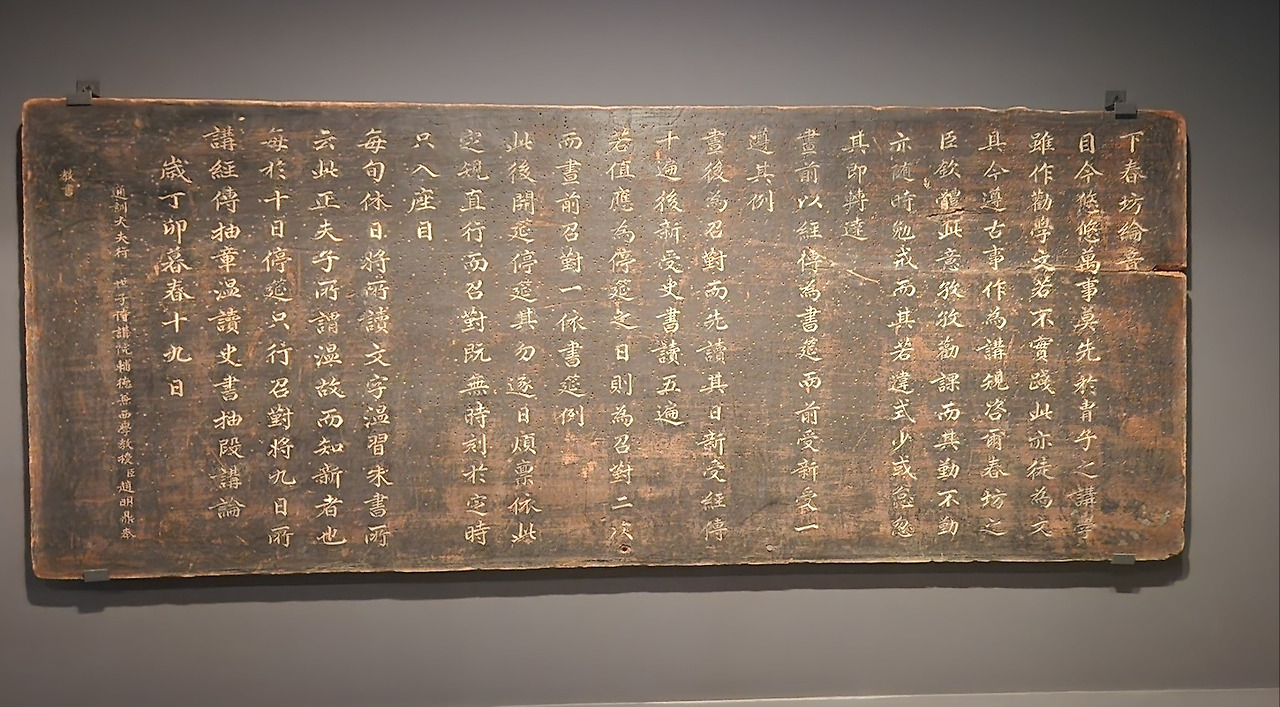 下春坊綸音
目今悠悠萬事莫先於胄子之講學
雖作勸學文若不實踐此亦徒為文
具今遵古事作為講規咨爾春坊之
臣欽體此意孜孜勸課而其勤不勤
亦隨時勉戒而其若違式少或怠忽
其即轉達
晝前以經傳為書筵而前受新受一
遵其例
晝後為召對而先讀其日新受經傳
十遍後新受史書讀五遍
若值應為停筵之日則為召對二次
而晝前召對一依書筵例
此後開筵停筵其勿逐日煩稟依此
定規直行而召對既無時刻於定時
只入座目
每旬休日將所讀文字溫習朱書所
云此正夫子所謂溫故而知新者也
每於十日停筵只行召對將九日所
講經傳抽章溫讀史書抽段講論
歲丁卯暮春十九日
通訓大夫行 世子侍講院輔德兼西學教授臣趙明鼎奉
教書